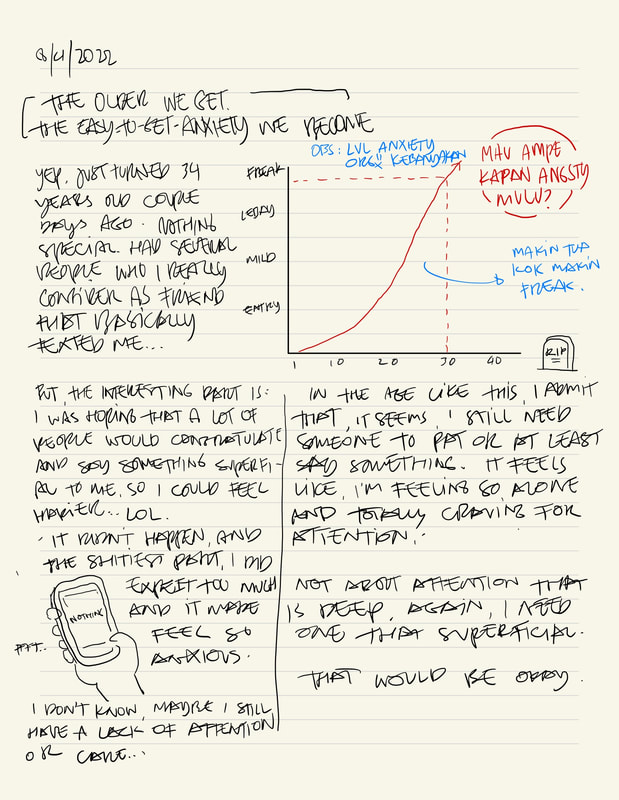 8/4/2022
THE OLDER WE GET.
THE EASY-TO-GET-ANXIETY WE BECOME
YEP. JUST TURNED 34
YEARS OLD COUPLE
DAYS AGO. NOTHING
SPECIAL. HAD SEVERAL
PEOPLE WHO I REALLY
CONSIDER AS FRIEND
THAT BASICALLY
TEXTED ME...
OBS: LVL ANXIETY
ORG2 KEBANYAKAN
FREAK
LEBAY
MILD
ENTRY
1 10 20 30 40
MAU AMPE
KAPAN ANGSTY
MULU?
MAKIN TUA
KOK MAKIN
FREAK.
RIP
BUT, THE INTERESTING PART IS:
I WAS HOPING THAT A LOT OF
PEOPLE WOULD CONGRATULATE
AND SAY SOMETHING SUPERFI-
AL TO ME, SO I COULD FEEL
HAPIER... LOL.
IT DIDN'T HAPPEN, AND
THE SHITIEST PART, I DID
EXPECT TOO MUCH
AND IT MADE
FEEL SO
ANXIOUS.
NOTHING
PFFT..
I DON'T KNOW, MAYBE I STILL
HAVE A LACK OF ATTENTION
OR CARE...
IN THE AGE LIKE THIS, I ADMIT
THAT, IT SEEMS, I STILL NEED
SOMEONE TO PAT OR AT LEAST
SAY SOMETHING. IT FEELS
LIKE, I'M FEELING SO ALONE
AND TOTALLY CRAVING FOR
ATTENTION..
NOT ABOUT ATTENTION THAT
IS DEEP, AGAIN, I NEED
ONE THAT SUPERFICIAL.
THAT WOULD BE OKAY.